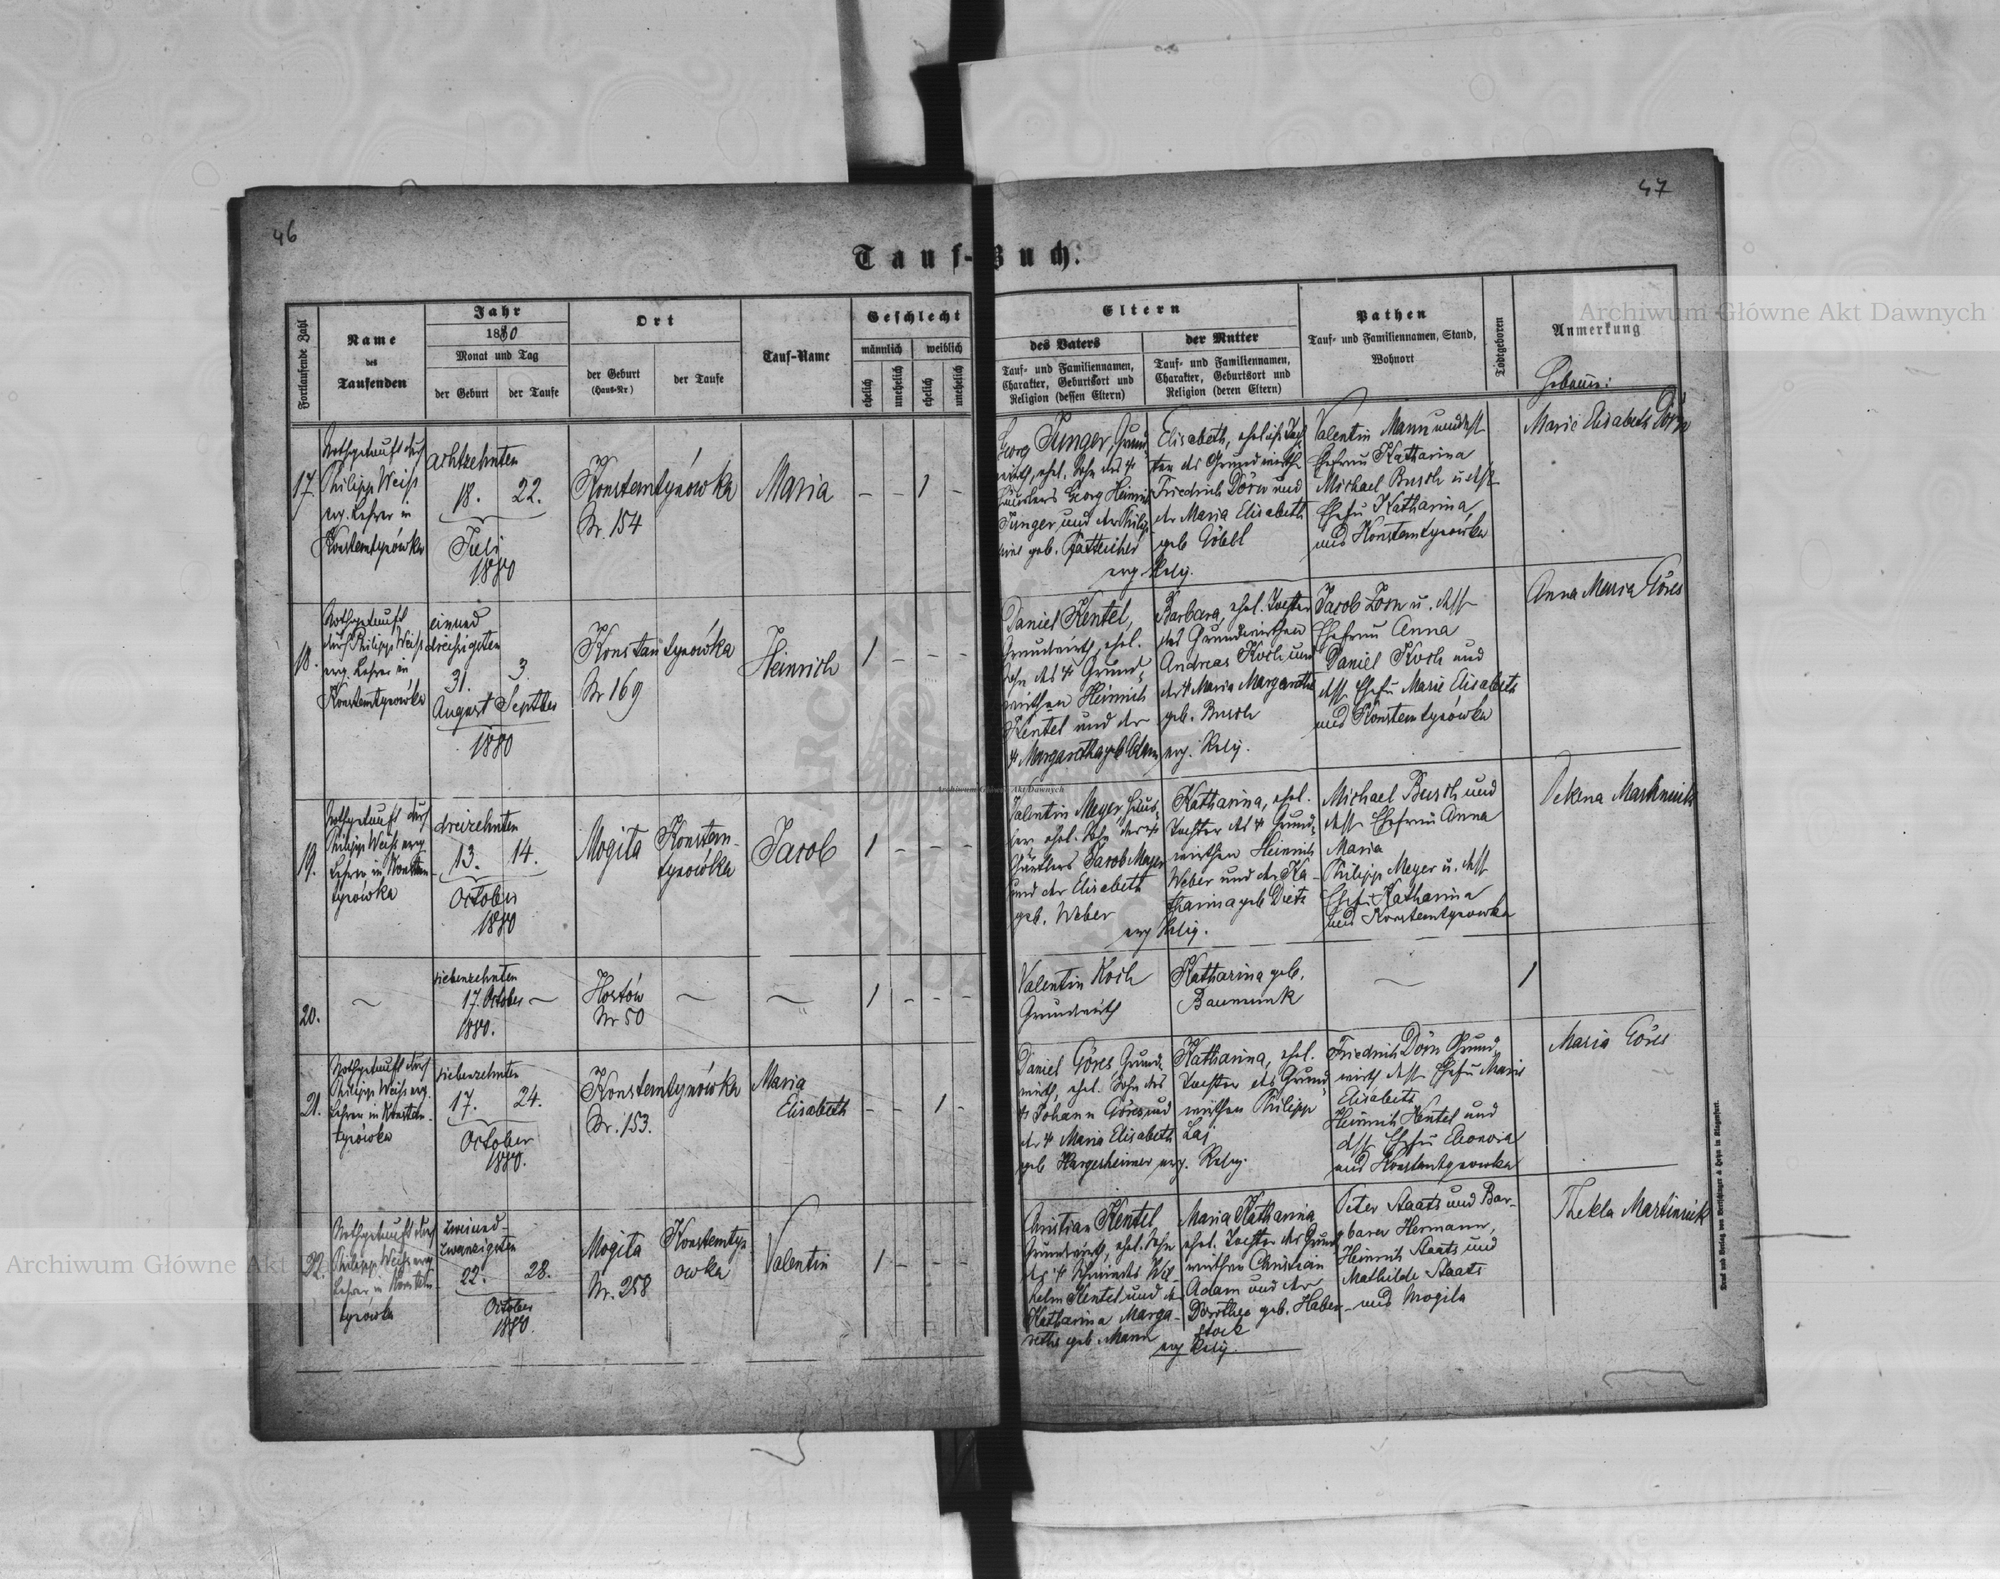 46
47
Tauf-Buch.
Archiwum Główne Akt Dawnych
Fortlaufende Zahl
Name
des
Taufenden
Jahr
1880
Monat und Tag
der Geburt
der Taufe
Ort
der Geburt
(Haus-Nr.)
der Taufe
Tauf-Name
Geschlecht
männlich
weiblich
ehelich
unehelich
ehelich
unehelich
Eltern
des Vaters
Tauf- und Familiennamen,
Charakter, Geburtsort und
Religion (dessen Eltern)
der Mutter
Tauf- und Familiennamen,
Charakter, Geburtsort und
Religion (deren Eltern)
Pathen
Tauf- und Familiennamen, Stand,
Wohnort
Todtgeboren
Anmerkung
17.
Nothgetauft durch
Philipp Weiß
evg. Lehrer in
Konstantynówka
achtzehnten
18. 22.
Juli
1880
Konstantynówka
Nr. 154
Maria
– – 1 –
Georg Junger, Grund-
wirth, ehel. Sohn des †
Georg Heinrich
Junger und der Philip-
geb.
Elisabeth, ehelich Toch-
ter des Grundwirth
Friedrich Dörn und
der Maria Elisabeth
geb Göbel
evg Relig.
Valentin Mann und dess
Ehefrau Katharina
Michael Busch u. dess
Ehefr Katharina
und Konstantynówka
Marie Elisabeth Dörn
18.
Nothgetauft
durch Philipp Weiß
evg. Lehrer in
Konstantynówka
einund
dreißigsten
31. 3.
August Septber
1880
Konstantynówka
Nr 169
Heinrich
1 – – –
Daniel Kentel,
Grundwirth, ehel.
Sohn des † Grund-
wirthen Heinrich
Kentel und der
† Margaretha geb Adam
Barbara, ehel. Tochter
des Grundwirthen
Andreas Koch und
der † Maria Margaretha
geb. Busch
evg. Relig.
Jacob Zorn u. dess
Ehefrau Anna
Daniel Koch und
dess Ehefr Marie Elisabeth
und Konstantynówka
Anna Maria Göres
19.
Nothgetauft durch
Philipp Weiß evg
Lehrer in Konstan-
tynówka
dreizehnten
13. 14.
October
1880
Mogila
Konstan-
tynówka
Jacob
1 – – –
Valentin Meyer, Häus-
ler ehel. Sohn des †
Häuslers Jacob Meyer
und der Elisabeth
geb. Weber
Katharina, ehel.
Tochter des † Grund-
wirthen Heinrich
Weber und der Ka-
tharina geb Dietz
evg Relig.
Michael Busch und
dess Ehefrau Anna
Maria
Philipp Meyer u. dess
Ehefr. Katharina
und Konstantynowka
20.
~
siebenzehnten
17. October ~
1880.
Hostów
Nr 50
~
~
1 – – –
Valentin Koch
Grundwirth
Katharina geb.
~
1
21.
Nothgetauft durch
Philipp Weiß evg.
Lehrer in Konstan-
tynówka
siebenzehnten
17. 24.
October
1880.
Konstantynówka
Nr. 153.
Maria
Elisabeth
– – 1 –
Daniel Göres Grund-
wirth, ehel. Sohn des
† Johann Göres und
der † Maria Elisabeth
geb Hargesheimer
Katharina, ehel.
Tochter des Grund-
wirthen Philipp
evg. Relig.
Friedrich Dörn Grund-
wirth dess Ehefr Maria
Elisabeth
Heinrich Kentel und
dess Ehefr Eleonora
und Konstantynowka
Maria Göres
22.
Nothgetauft durch
Philipp Weiß evg
Lehrer in Konstan-
tynówka
zweiund-
zwanzigsten
22. 28.
October
1880.
Mogila
Nr. 258
Konstantyn-
owka
Valentin
1 – – –
Christian Kentel
Grundwirth, ehel. Sohn
des † Schmiedes Wil-
helm Kentel und der
Katharina Marga-
retha geb. Mann
Maria Katharina
ehel. Tochter des Grund-
wirthen Christian
Adam und der
Dorothea geb. Haber-
stock
evg Relig.
Peter Staats und Bar-
bara Hermann,
Heinrich Staats und
Mathilde Staats
und Mogila
Thekla Martiniuk
Archiwum Główne Akt Dawnych